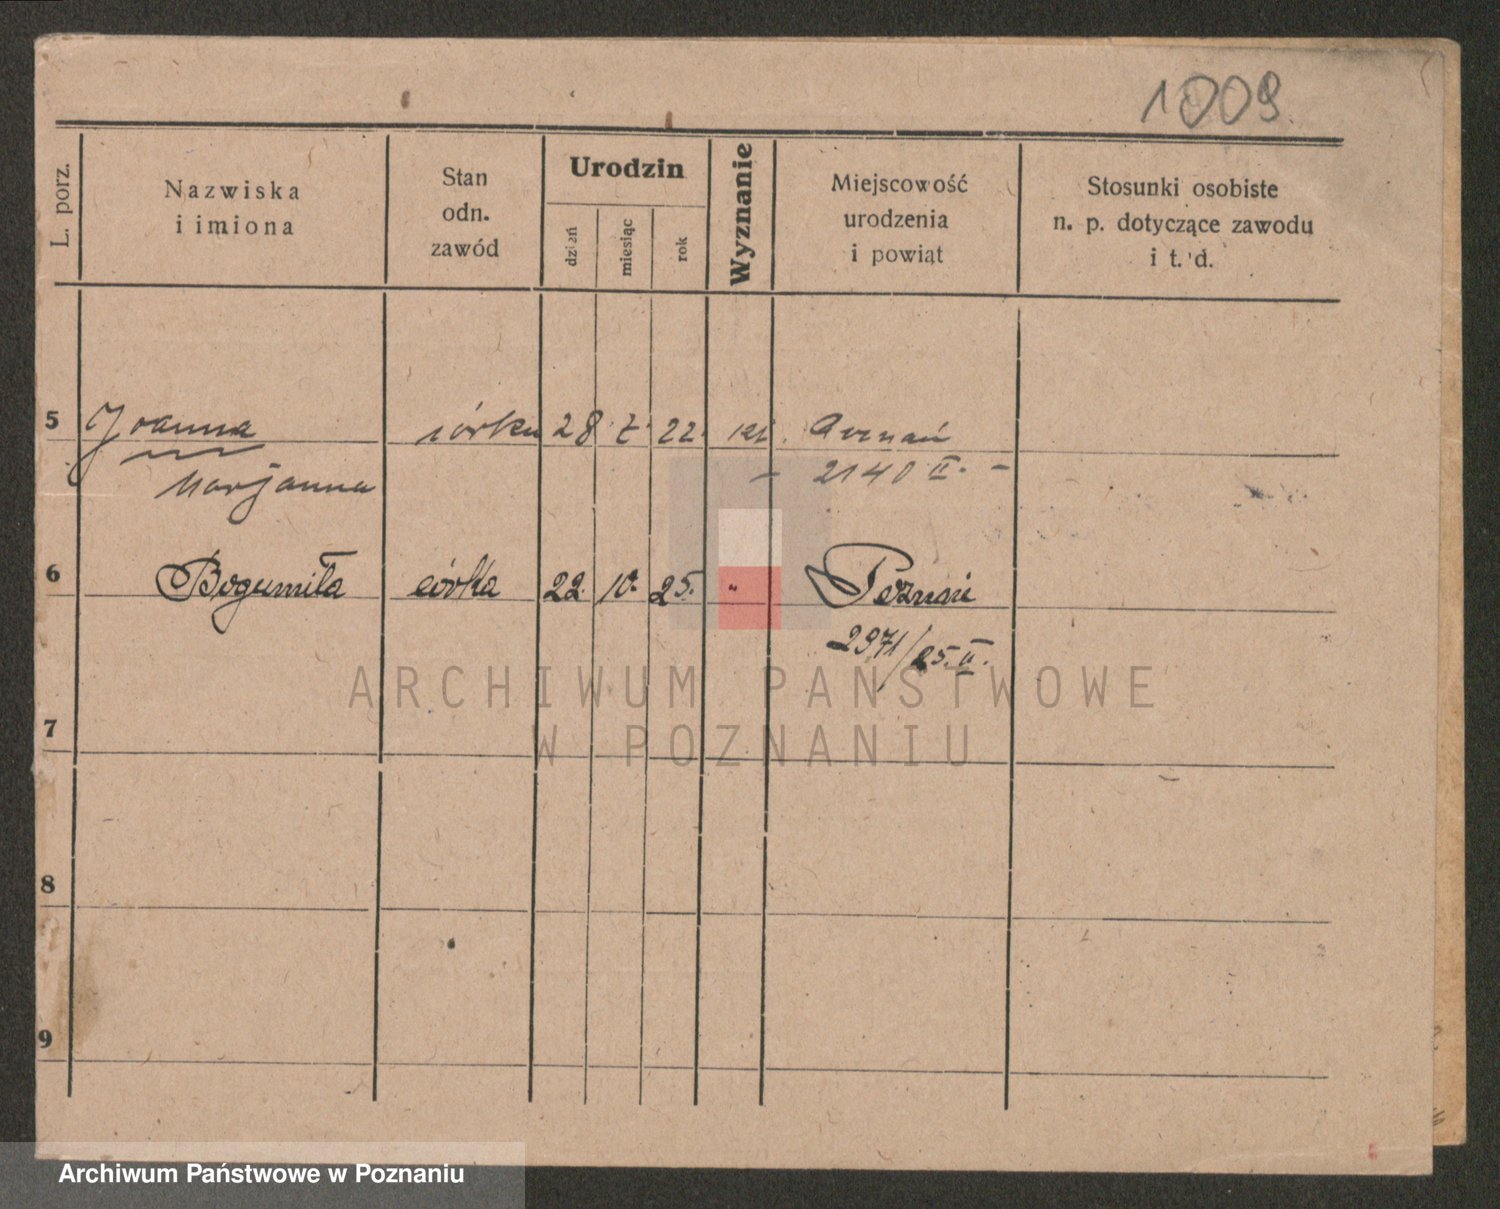 1009.
L. porz.
Nazwiska
i imiona
Stan
odn.
zawód
Urodzin
dzień
miesiąc
rok
Wyznanie
Miejscowość
urodzenia
i powiat
Stosunki osobiste
n. p. dotyczące zawodu
i t. d.
5 Joanna córka 28 22. Poznań
Marjanna 2140 II. -
6 Bogumiła córka 22. 10. 25. " Poznań
2971/25. II.
7
8
9
ARCHIWUM PAŃSTWOWE
W POZNANIU
Archiwum Państwowe w Poznaniu